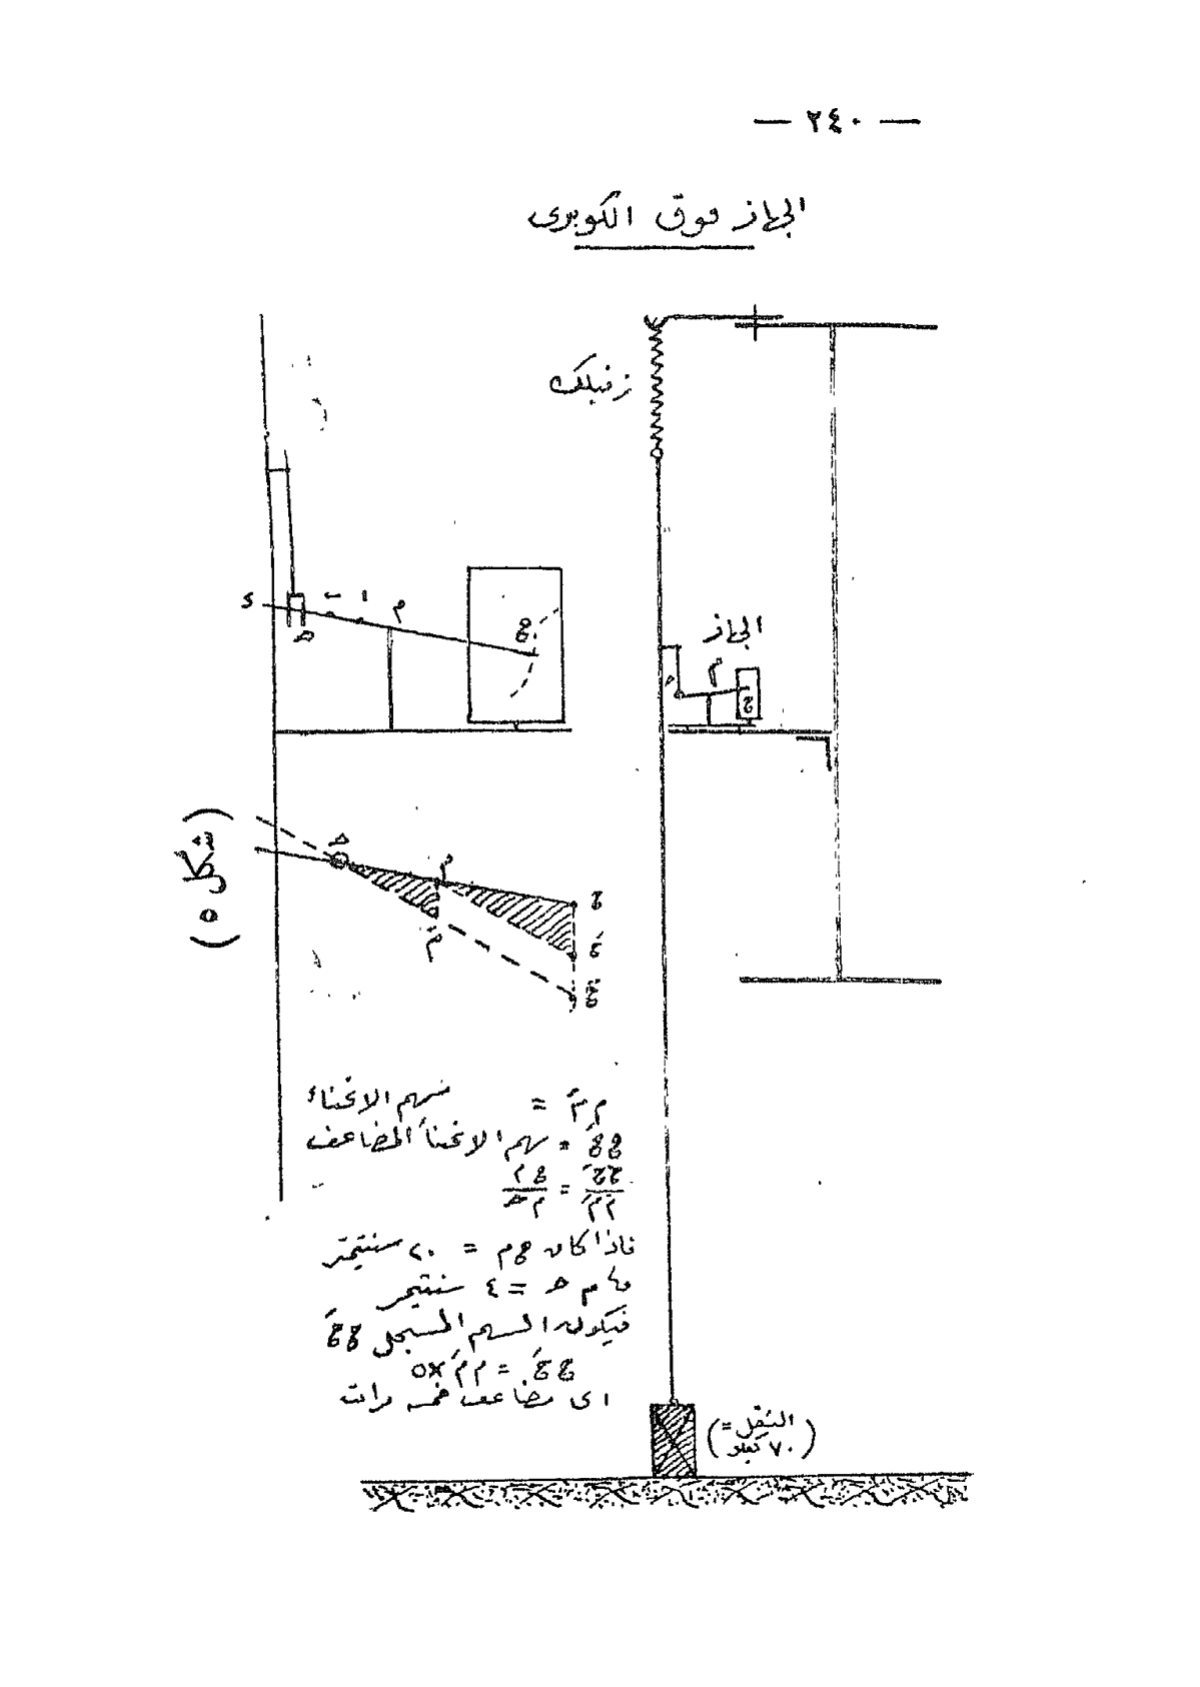 — ٢٤٠ —
الجهاز فوق الكوبرى
زنبلك
د
ب
ا
م
ح
ع
الجهاز
م
ح
ع
(شكل ٥)
ح
م
مَ
ع
عَ
عً
م مَ = سهم الانحناء
ع عَ = سهم الانحناء المضاعف
ع عَ / م مَ = ع م / م ح
فاذا كان ع م = ٢٠ سنتيمتر
و م ح = ٤ سنتيمتر
فيكون السهم المسجل ع عَ
ع عَ = م مَ × ٥
اى مضاعف خمسة مرات
(الثقل =
٧٠ كيلو)